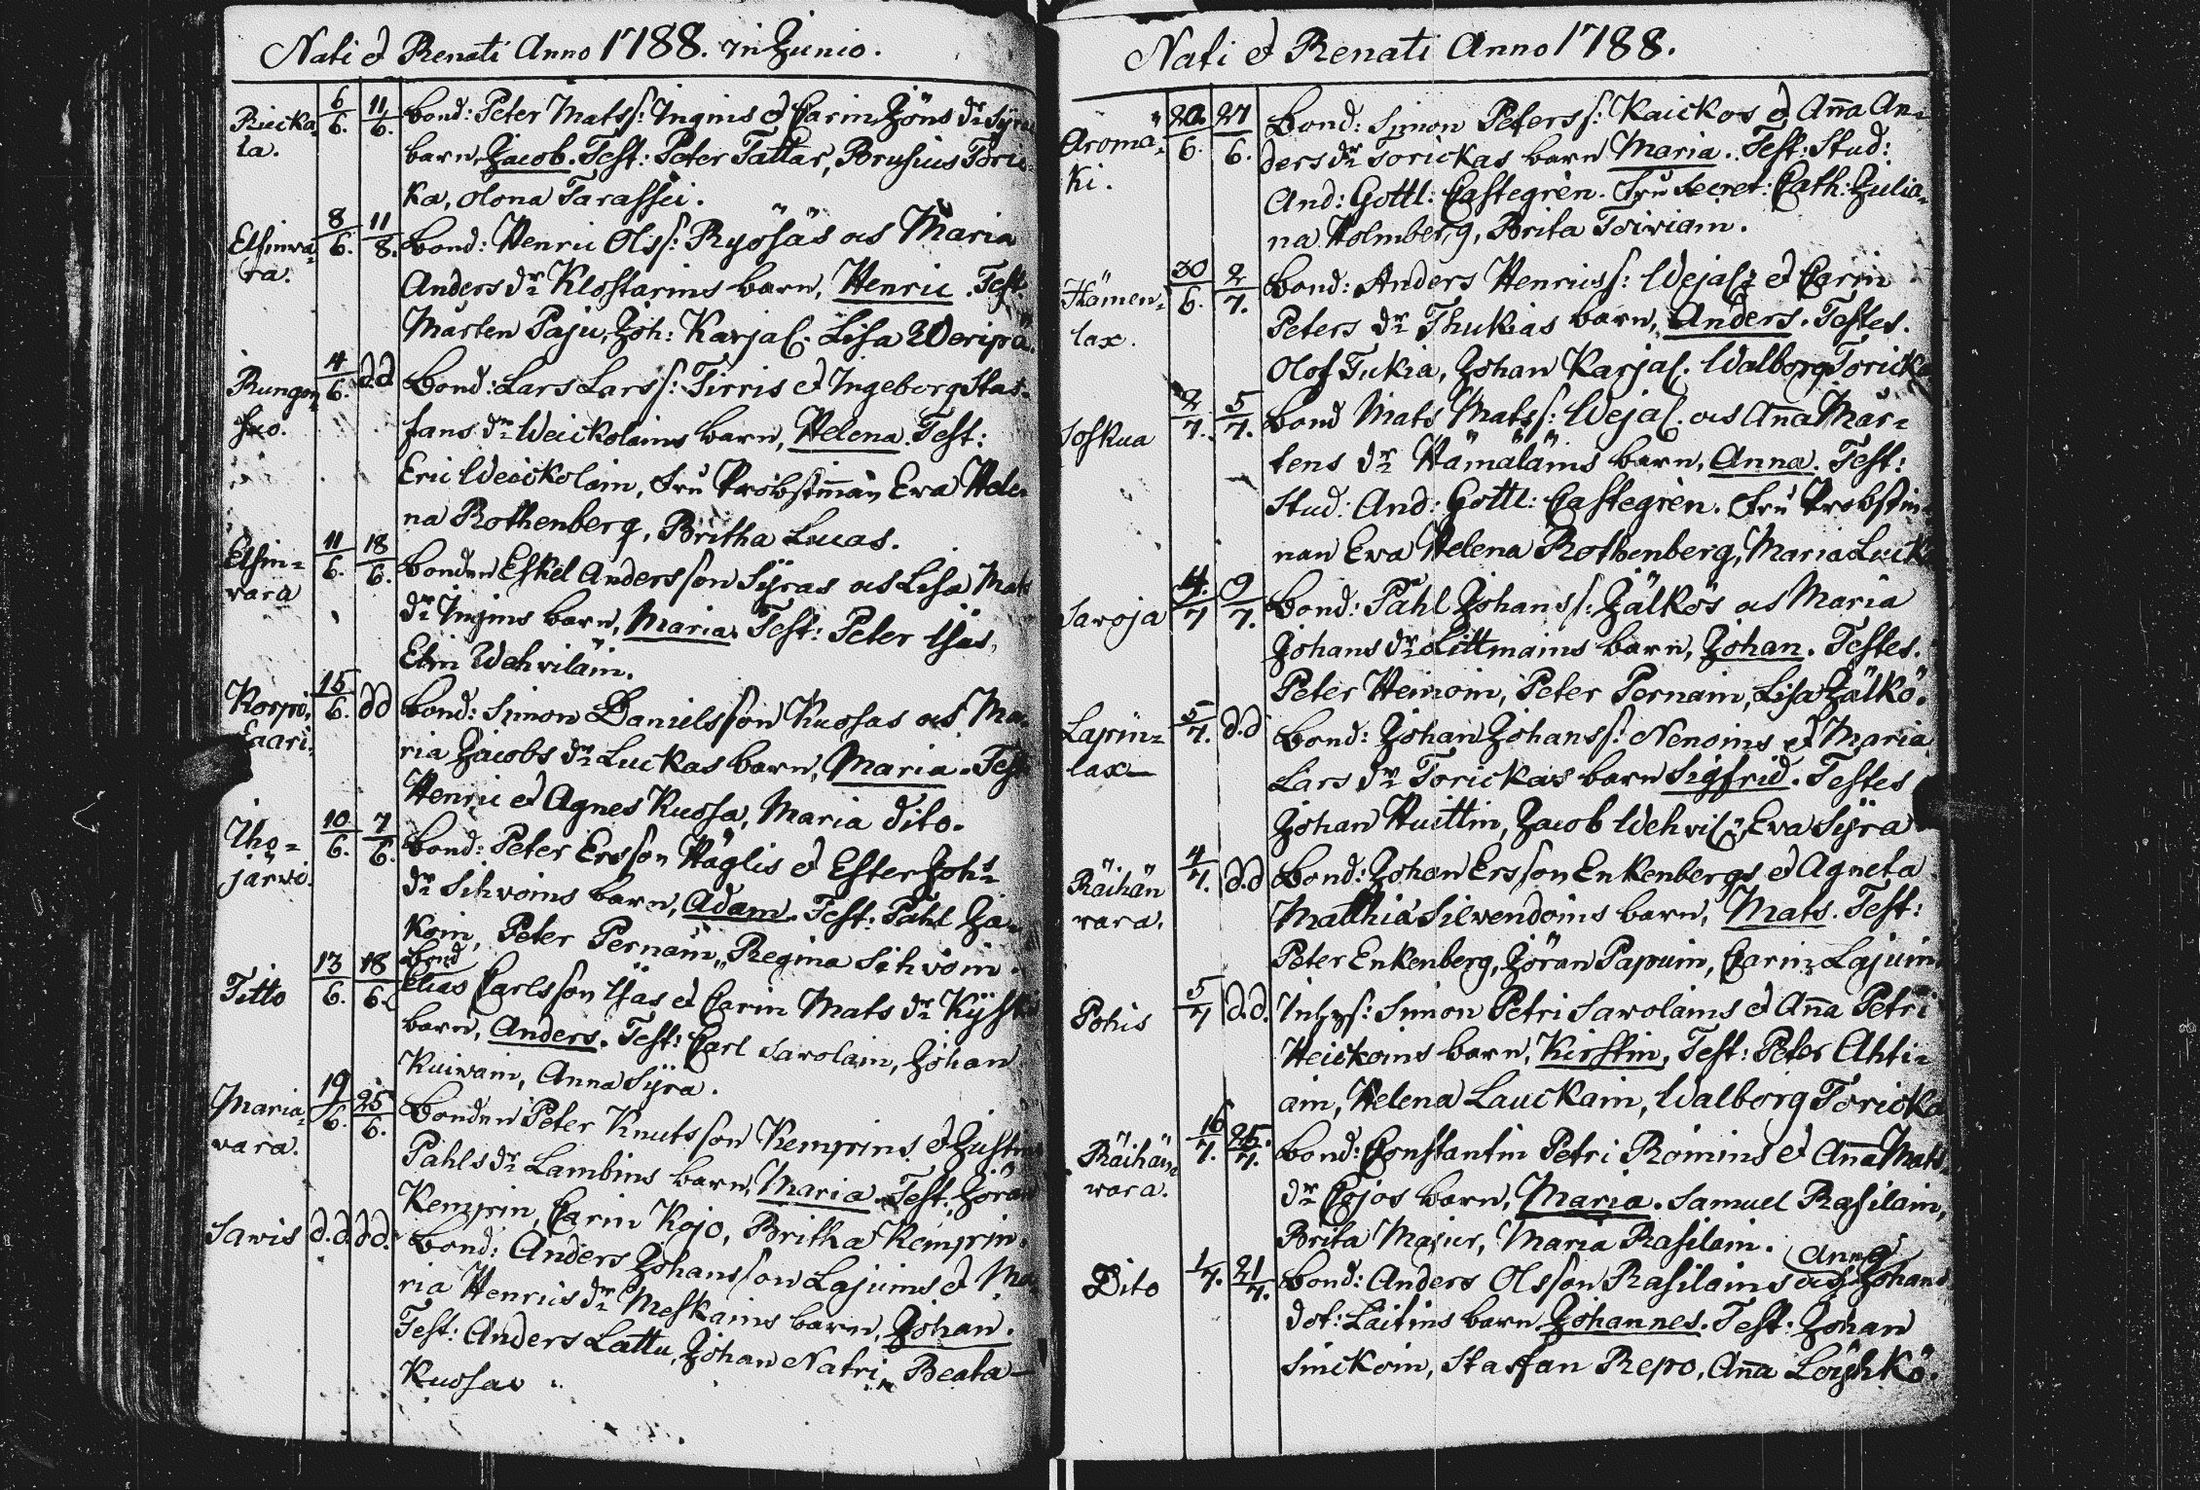 Nati et Renati Anno 1788. in Junio.
Riecka 6/6. 11/6. Bond: Peter Matss: Ingins et Carin Jöns dr Syra
la. barn, Jacob. Test: Peter Tattar, Brusius Tori-
ka, Olona Tarassei.
Elsinwa- 8/6. 11/8. Bond: Henric Olss: Ryösäs och Maria
ra. Anders dr Klostarins barn, Henric. Test.
Mårten Paju, Joh: Karjal. Lisa Weripä.
Rungon 4/6. d.d Bond: Lars Larss: Tirris et Ingeborg Staf-
suo. fans dr Weickolains barn, Helena. Test:
Eric Weickolain, Fru Probstinnan Eva Hele-
na Rothenberg, Britha Lucas.
Elsin- 11/6. 18/6. Bonden Eskel Andersson Syras och Lisa Mats
vara dr Ingins barn, Maria. Test: Peter Usas,
Elin Wehviläin.
Korpi 15/6. dd Bond: Simon Danielsson Kuosas och Ma-
saari. ria Jacobs dr Luckas barn, Maria. Test
Henric et Agnes Kuosa, Maria dito.
Iho- 10/6. 7/6. Bond: Peter Ersson Häglis et Ester Joh:s
järvi. dr Sihvoins barn, Adam. Test: Påhl Ja-
koin, Peter Pernain, Regina Sihvoin.
Bond
Titto 13/6. 18/6. Elias Carlsson Usäs et Carin Mats dr Kyst
barn, Anders. Test: Carl Savolain, Johan
Kuivain, Anna Syra.
Maria- 19/6. 25/6. Bonden Peter Knutsson Kemppins et Justin
vara. Påhls dr Lambins barn, Maria. Test. Jöran
Kemppin, Carin Kojo, Britha Kemppin.
Savis d.d. dd. Bond: Anders Johansson Lajuins et Ma-
ria Henrics dr Meskains barn, Johan.
Test: Anders Lattu, Johan Natrin Beata
Kuosa
Nati et Renati Anno 1788.
Aromä- 20/6. 27/6. Bond: Simon Peterss: Kaickos et Anna An-
ki. ders dr Torickas barn Maria. Test: Stud:
And: Gottl: Castegrèn. Fru Secret: Cath: Julia-
na Holmberg, Brita Toiviain.
Hämen- 30/6. 2/7. Bond: Anders Henricss: Wejal: et Carin
lax. Peters dr Thukias barn, Anders. Testes.
Olof Tukia, Johan Karjal. Walborg Toricka
Soskua 2/7. 5/7. Bond Mats Matss: Wejal. och Anna Mår-
tens dr Hämäläins barn, Anna. Test:
Stud: And: Gottl: Castegrèn. Fru Probstin-
nan Eva Helena Rothenberg, Maria Luck
Saroja 4/7 9/7. Bond: Påhl Johanss: Jälkös och Maria
Johans dr Littmains barn, Johan. Testes.
Peter Heinoin, Peter Pernain, Lisa Jälkö.
Lapin- 5/7. d.d Bond: Johan Johanss: Nenoins et Maria
lax Lars dr Torickas barn Sigfrid. Testes
Johan Huittin, Jacob Wehvil:, Eva Syra
Räihän 4/7. d.d Bond: Johan Ersson Enkenbergs et Agneta
vara. Matthiæ Silvendoins barn, Mats. Test:
Peter Enkenberg, Jöran Papuin, Carin Lajuin
Pohis 5/7 d.d. Inhys: Simon Petri Savolains et Anna Petri
Heickoins barn, Kirstin, Test: Peter Ahti-
ain, Helena Lauckain, Walborg Toricka
Räihän 16/7. 25/7. Bond: Constantin Petri Roinins et Anna Mats
vara. dr Cojos barn, Maria. Samuel Rasilain,
Brita Majur, Maria Rasilain.
Dito 1/7. 21/7. Bond: Anders Olsson Rasilains och Anna Johans
dot: Läitins barn Johannes. Test. Johan
Sinckoin, Staffan Repo, Anna Löyhkö.